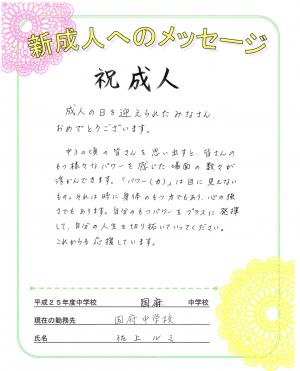 新成人へのメッセージ
祝 成人
成人の日を迎えられたみなさん
おめでとうございます。
中3の頃の皆さんを思い出すと、皆さんの
もつ様々なパワーを感じた場面の数々が
浮かんできます。「パワー(力)」は目に見えない
もの。それは時に身体のもつ力でもあり、心の強
さでもあります。自分のもつパワーをプラスに発揮
して、自分の人生を切り拓いていってください。
これからも応援しています。
平成25年度中学校 国府 中学校
現在の勤務先 国府中学校
氏名 上 ルミ